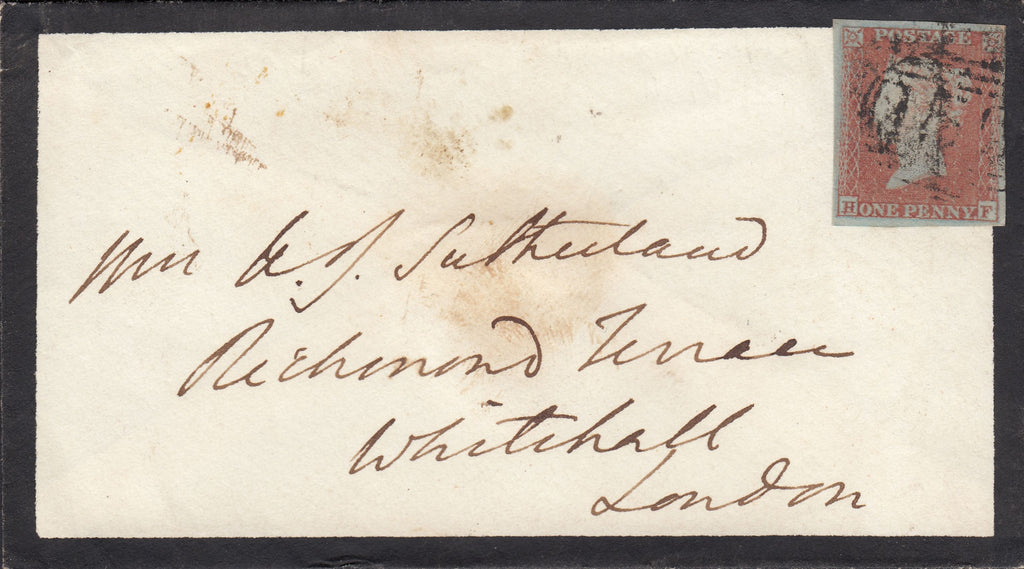 POSTAGE
H ONE PENNY F
Mrs A. J. Sutherland
Richmond Terrace
Whitehall
London